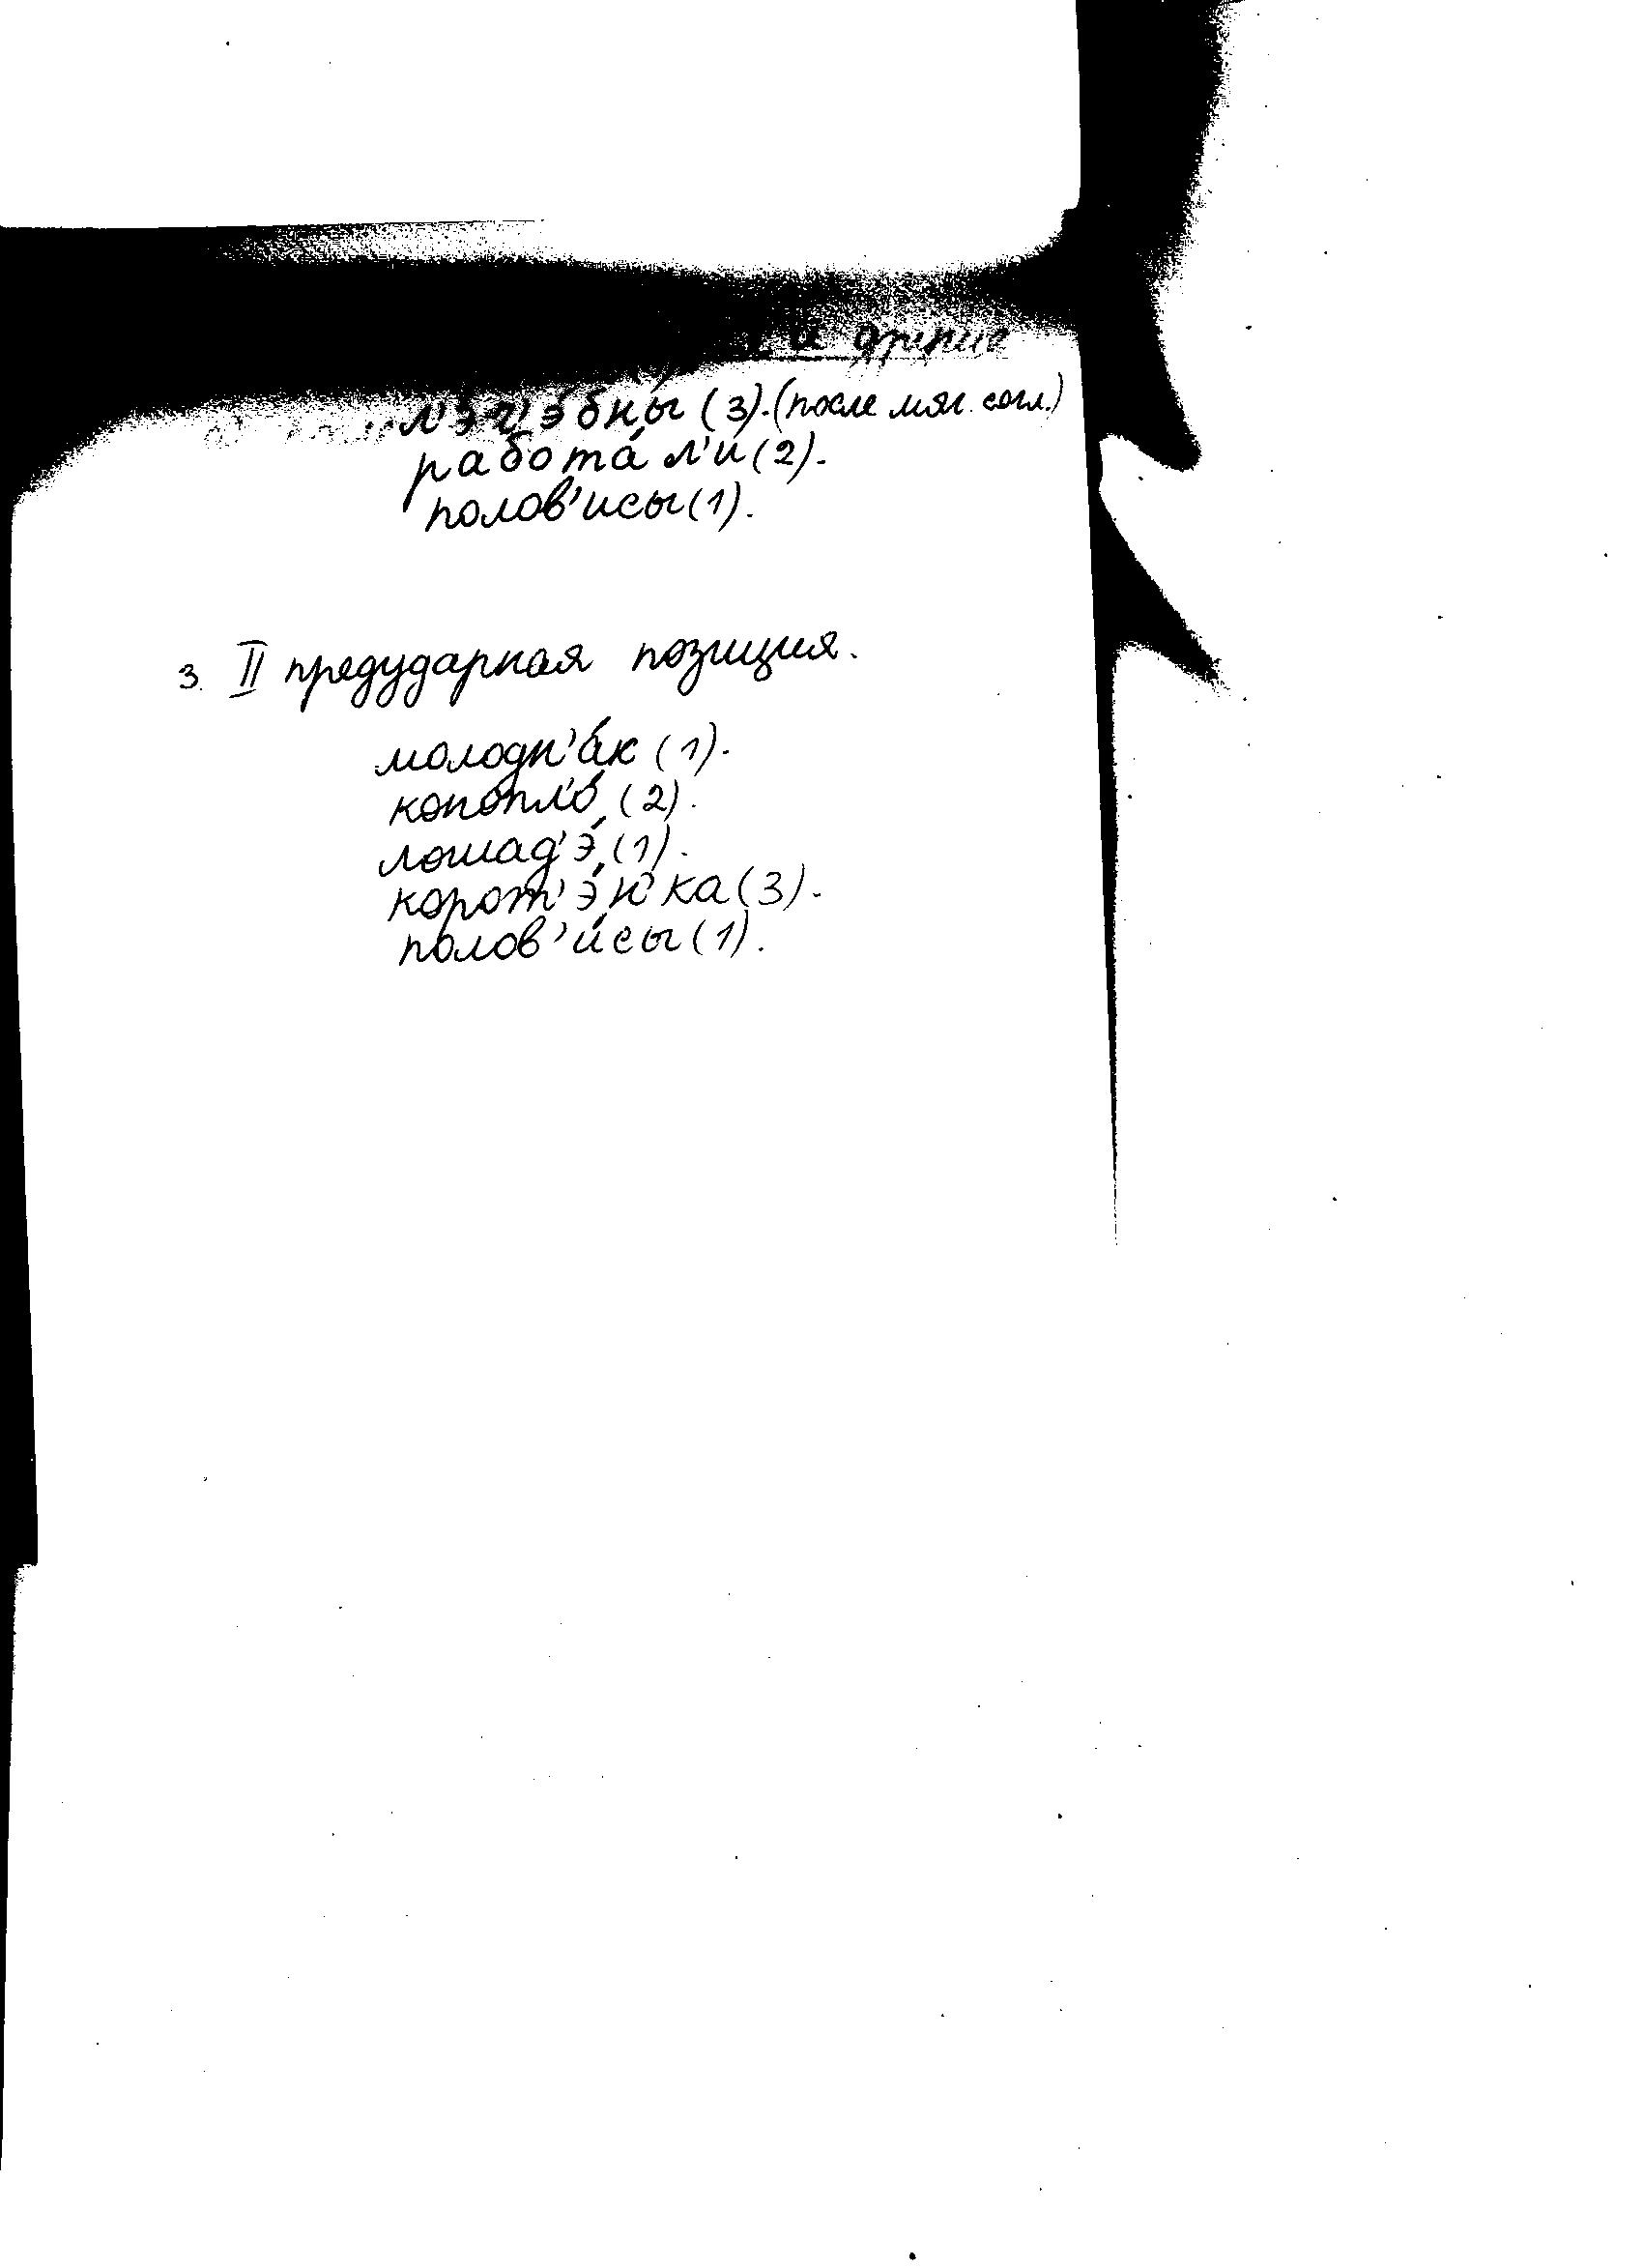 и другие
л'эч'э́бны (3). (после мяг. согл.)
рабо́тал'и (2).
полов'исы (1).
3. II предударная позиция.
молодн'а́к (1).
конопл'о́ (2).
лошад'э́ (1).
корот'э́н'ка (3).
полов'и́сы (1).